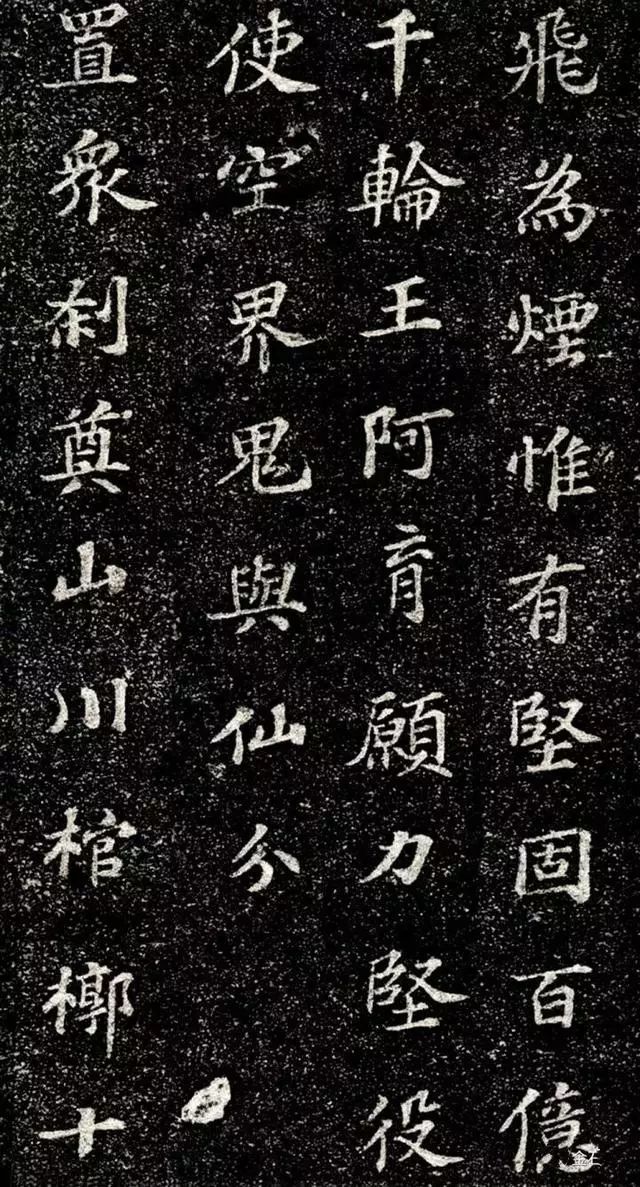 飛為煙惟有堅固百億
千輪王阿育願力堅役
使空界鬼與仙分
置衆刹奠山川棺槨十